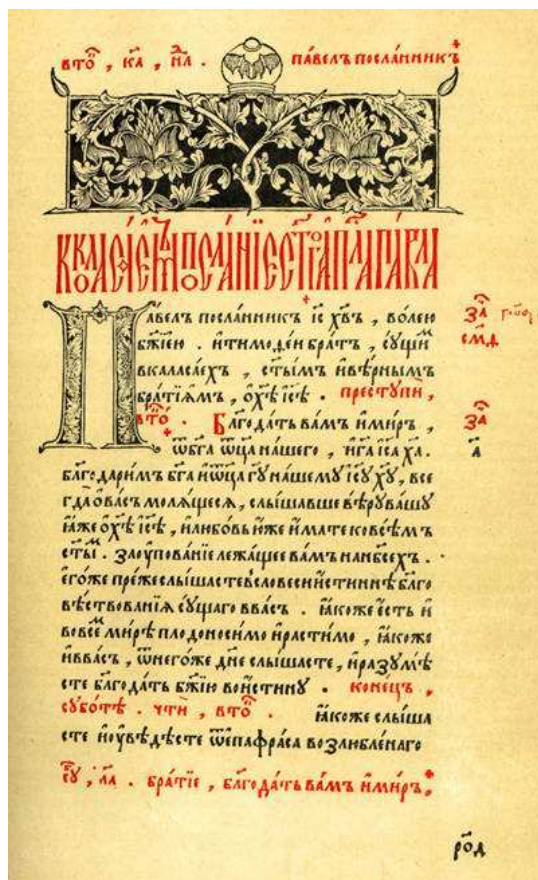 вто҇ , ка҃ , н҃л . па́велъ посла́нникъ
К КОЛАСА́ЕМЪ ПОСЛА́НЇЕ СТ҃ГО АПⷭ҇ЛА ПА́ВЛА
Па́велъ посла́нникъ і҆с хв҃ъ , во́лею
бж҃їею . и҆ тимоѳе́и бра́тъ , су́щиⷨ
вкаласа́ехъ , ст҃ы́мъ и҆вѣ́рнымъ
бра́тїꙗмъ , ѡ҆хе҃ і҆се҃ . преступѝ ,
вто́ . Блг҃ода́ть ва́мъ и҆ми́ръ ,
ѿбг҃а ѿц҃а на́шего , и҆гд҃а і҆с҃а х҃а .
благодари́мъ бг҃а и҆ѿц҃а гд҃у на́шему і҆с҃у х҃у , все
гда̀ ѡ҆ва́съ молѧ́щесѧ , слы́шавше вѣ́ру ва́шу
ꙗ҆́же ѡ҆хе҃ і҆се҃ , и҆любо́вь ю҆́же и҆́мате ковсѣ́мъ
ст҃ы́мъ . заᲂу҆пова́нїе лежа́щее ва́мъ нанб҃сехъ .
є҆го́же пре́жеслы́шасте всловеси и҆́стиннѣ бл҃го
вѣ́ствованїѧ су́щаго ввасъ . ꙗ҆́коже є҆́сть и҆
вовсе́мъ ми́рѣ плодоноси́мо и҆расти́мо , ꙗ҆́коже
и҆ввасъ , ѿнего́же дн҃е слы́шасте , и҆разумѣ́
сте бл҃года́ть бж҃їю вои́стину . коне́цъ ,
субо́тѣ . чтѝ , вто҇ . ꙗ҆́коже слы́ша
сте и҆ᲂу҆вѣ́дѣсте ѿе҆пафра́са возлю́бленаго
ла҃ . бра́тїе , бл҃года́ть ва́мъ и҆ми́ръ ,
за҃
смд҃
за҃
а҃
роⷣ